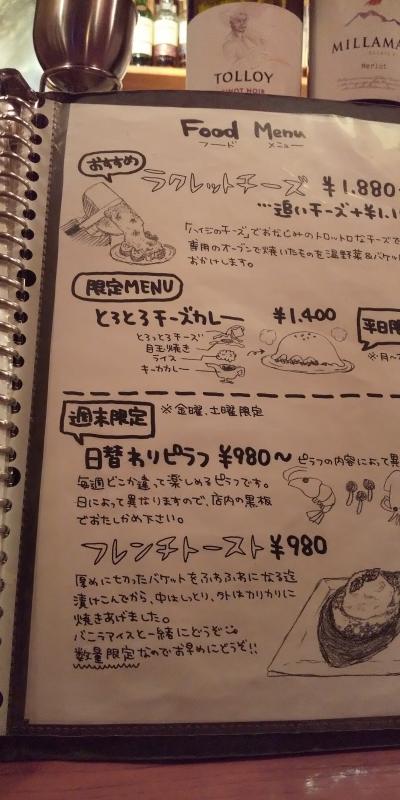 TOLLOY
PINOT NOIR
MILLAMA
Merlot
Food Menu
フード メニュー
おすすめ
ラクレットチーズ ¥1.880
…追いチーズ+¥1.1
「ハイジのチーズ」でおなじみのトロットロなチーズで
専用のオーブンで焼いたものを温野菜&バゲッ
おかけします。
限定MENU
とろとろチーズカレー ¥1.400
とろっとろチーズ
目玉焼き
ライス
キーマカレー
平日限
※月〜
週末限定 ※金曜、土曜限定
日替わりピラフ ¥980〜 ピラフの内容によって異
毎週どこか違って楽しめるピラフです。
日によって異なりますので、店内の黒板
でおたしかめ下さい。
フレンチトースト ¥980
厚めに切ったバゲットをふわふわになる迄
漬けこんでから、中はしっとり、外はカリカリに
焼きあげました。
バニラアイスと一緒にどうぞ
数量限定なのでお早めにどうぞ!!